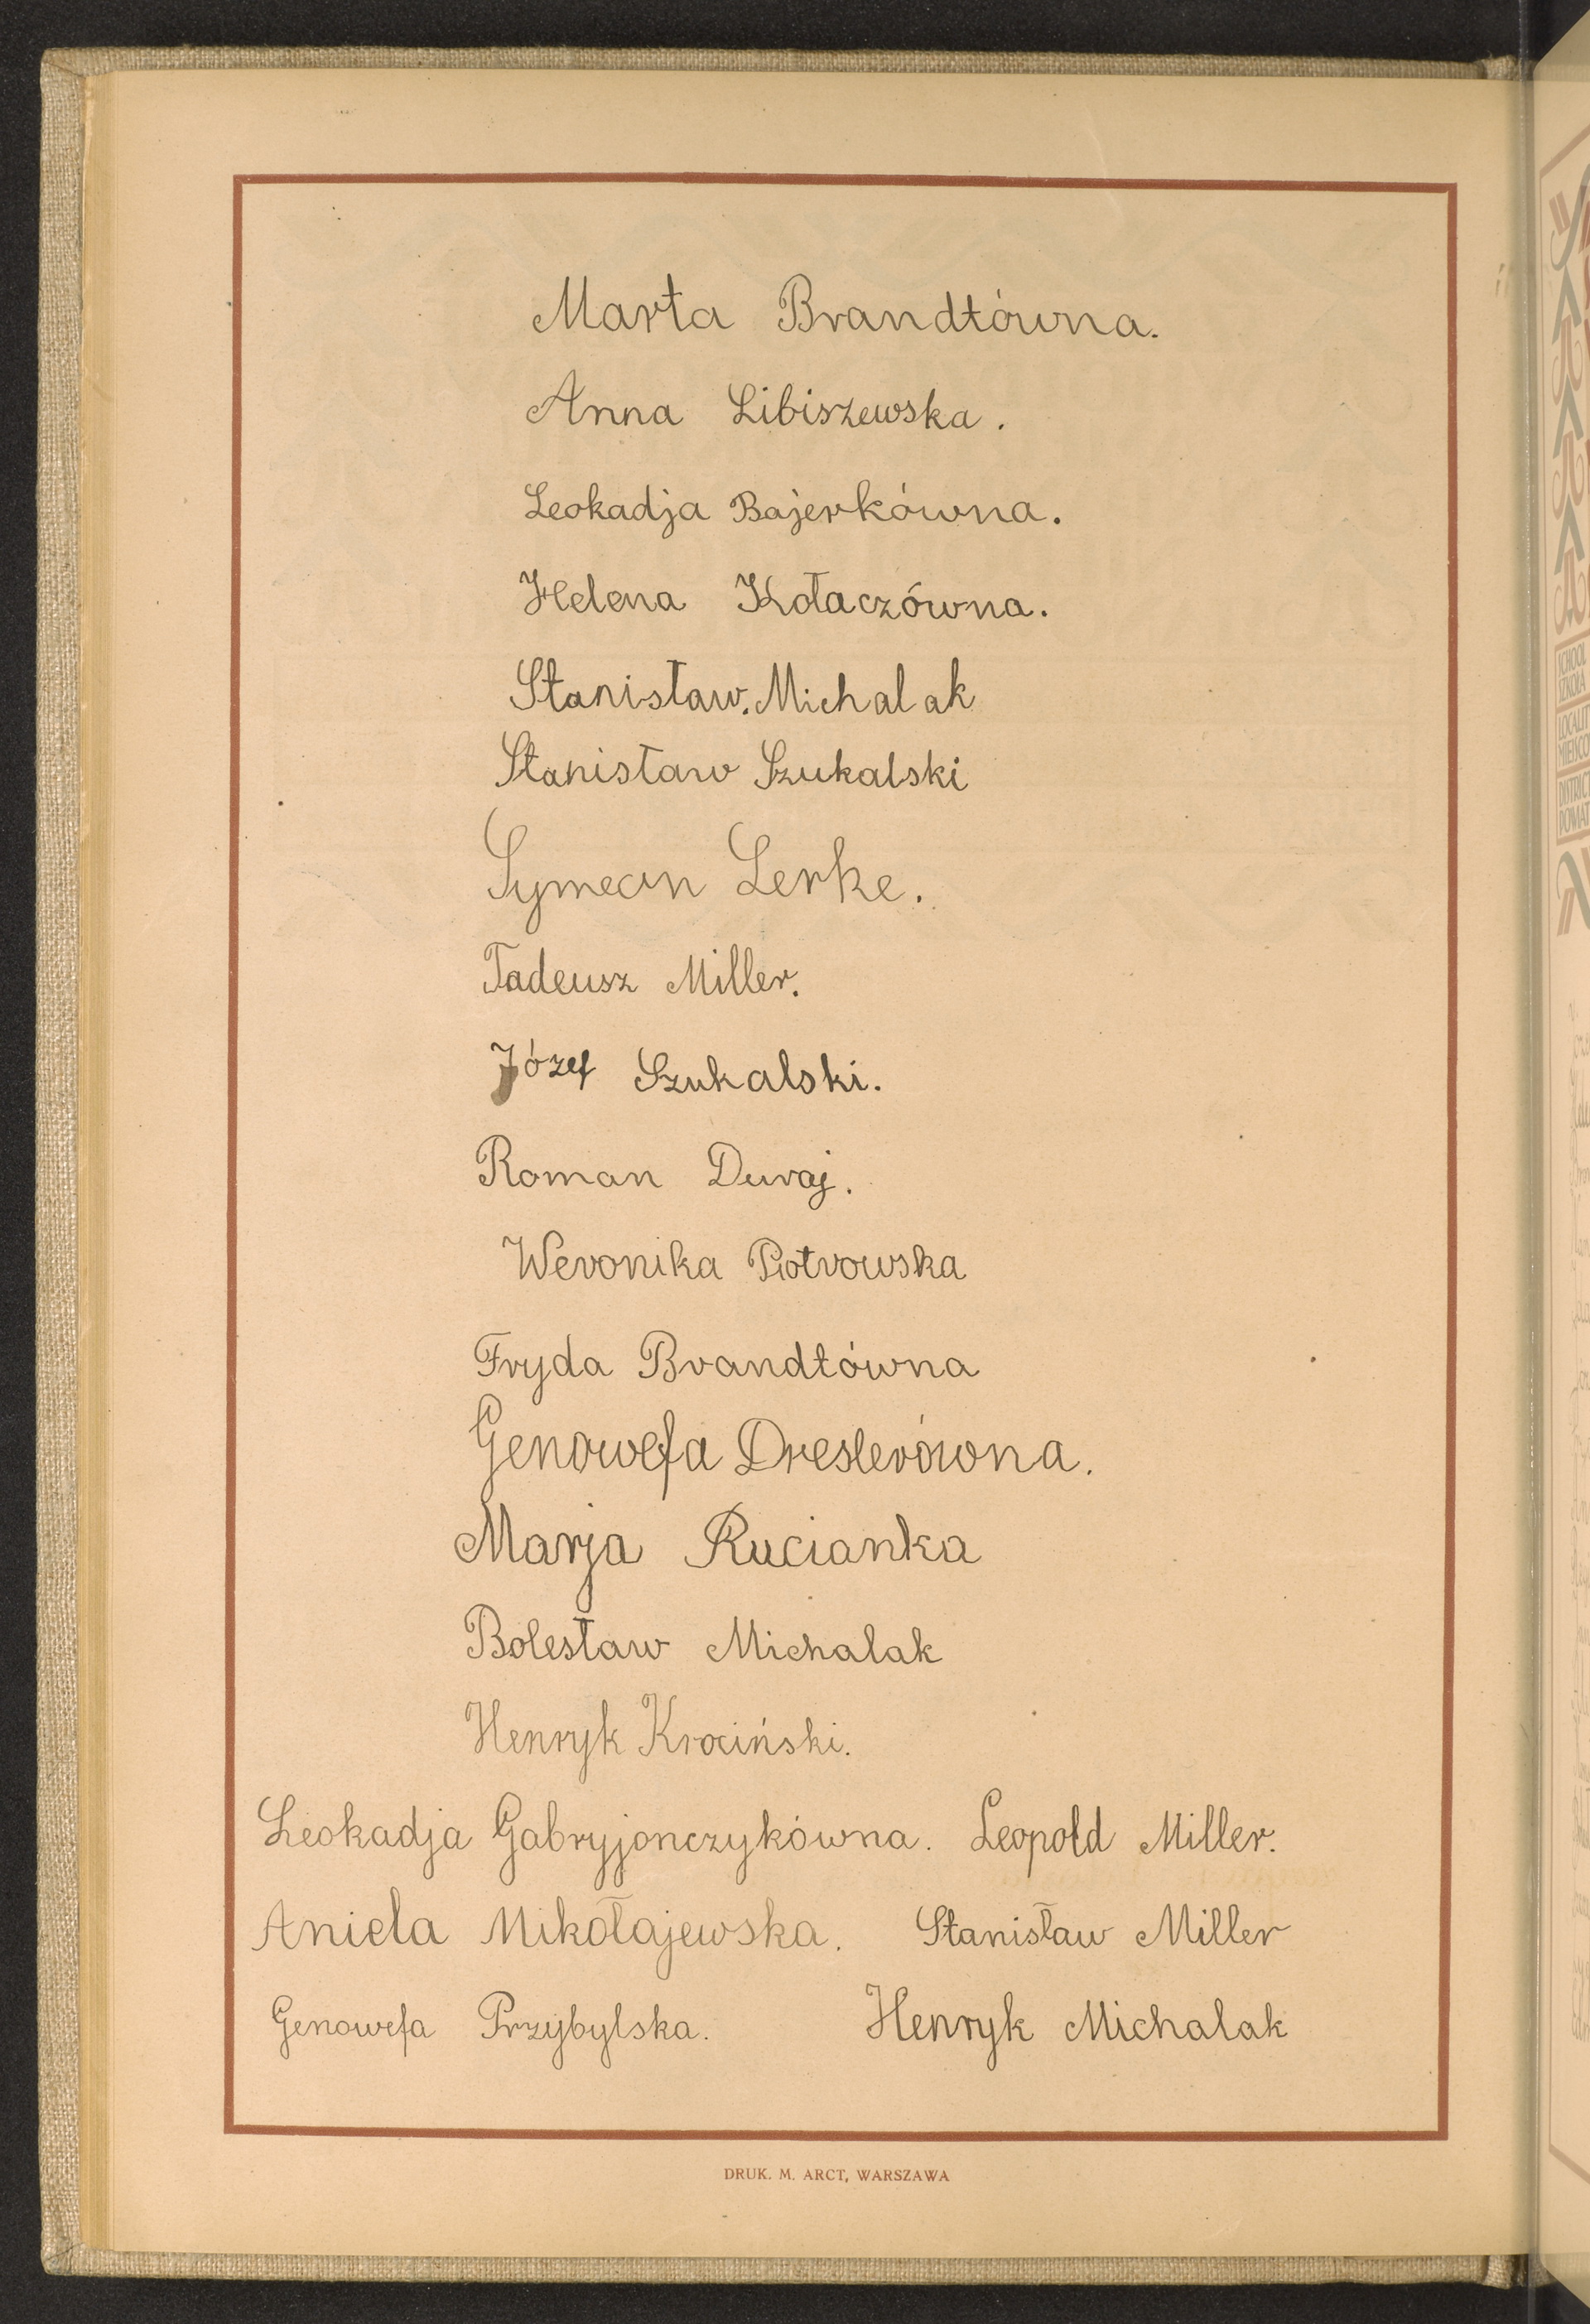 Marta Brandtówna.
Anna Libiszewska.
Leokadja Bajerkówna.
Helena Kołaczówna.
Stanisław. Michalak
Stanisław Szukalski
Symeon Lerke.
Tadeusz Miller.
Józef Szukalski.
Roman Duraj.
Weronika Piotrowska
Fryda Brandtówna
Genowefa Dreslerówna.
Marja Rucianka
Bolesław Michalak
Henryk Krociński.
Leokadja Gabryjonczykówna. Leopold Miller.
Aniela Mikołajewska. Stanisław Miller
Genowefa Przybylska. Henryk Michalak
DRUK. M. ARCT, WARSZAWA
SCHOOL
SZKOŁA